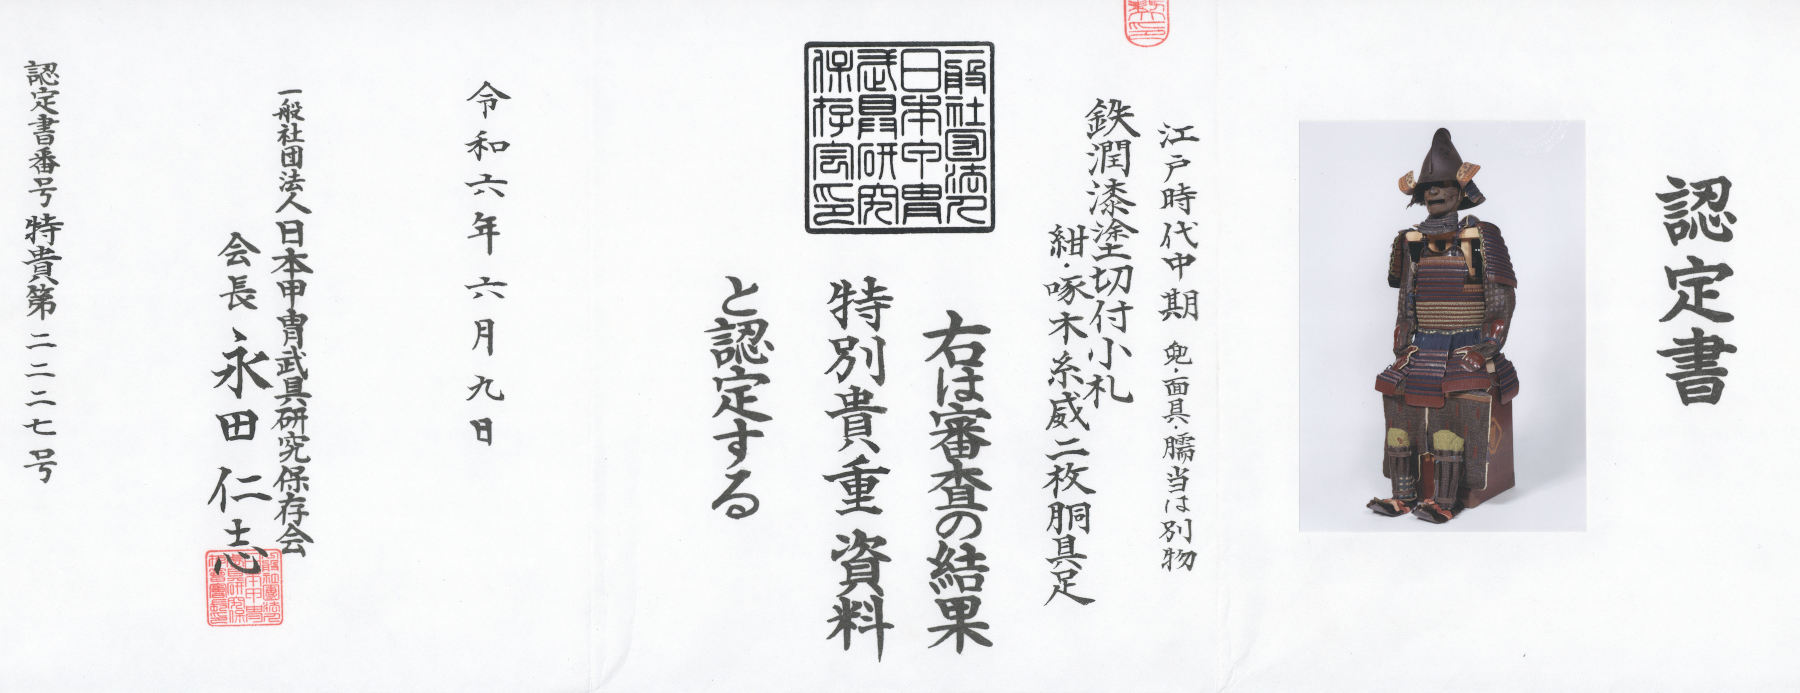 認定書
江戸時代中期 兜・面具・臑当は別物
鉄潤漆塗切付小札
紺・啄木糸威二枚胴具足
一般社団法人
日本甲冑
武具研究
保存会印
右は審査の結果
特別貴重資料
と認定する
令和六年六月九日
一般社団法人日本甲冑武具研究保存会
会長 永田仁志
認定書番号特貴第二二二七号